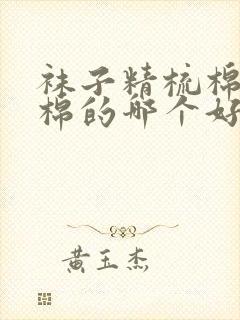 袜子精梳棉
棉的哪个好
黄玉杰